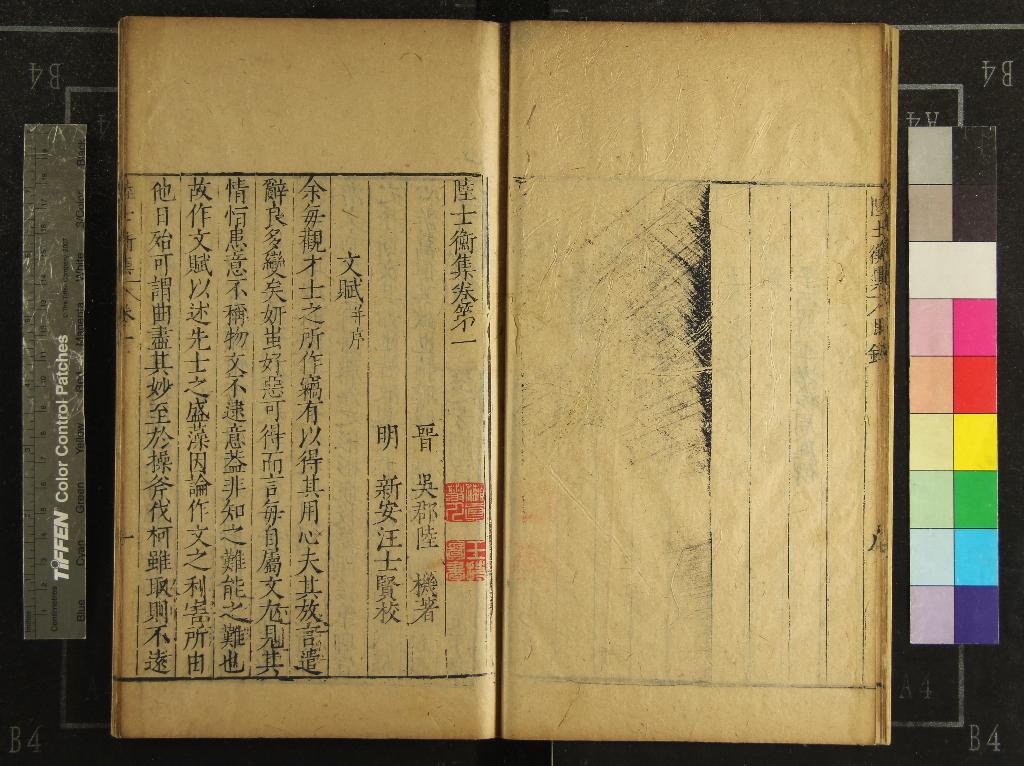 陸士衡集卷第一
晉 吳郡陸 機著
明 新安汪士賢校
文賦并序
余每觀才士之所作竊有以得其用心夫其放言遣
辭良多變矣妍蚩好惡可得而言每自屬文尤見其
情恒患意不稱物文不逮意葢非知之難能之難也
故作文賦以述先士之盛藻因論作文之利害所由
他日殆可謂曲盡其妙至於操斧伐柯雖取則不遠
B4
B4
A4
A4
B4
B4
TIFFEN Color Control Patches
Blue
Cyan
Green
Yellow
Red
Magenta
White
3/Color
Black
Centimetres
Inches